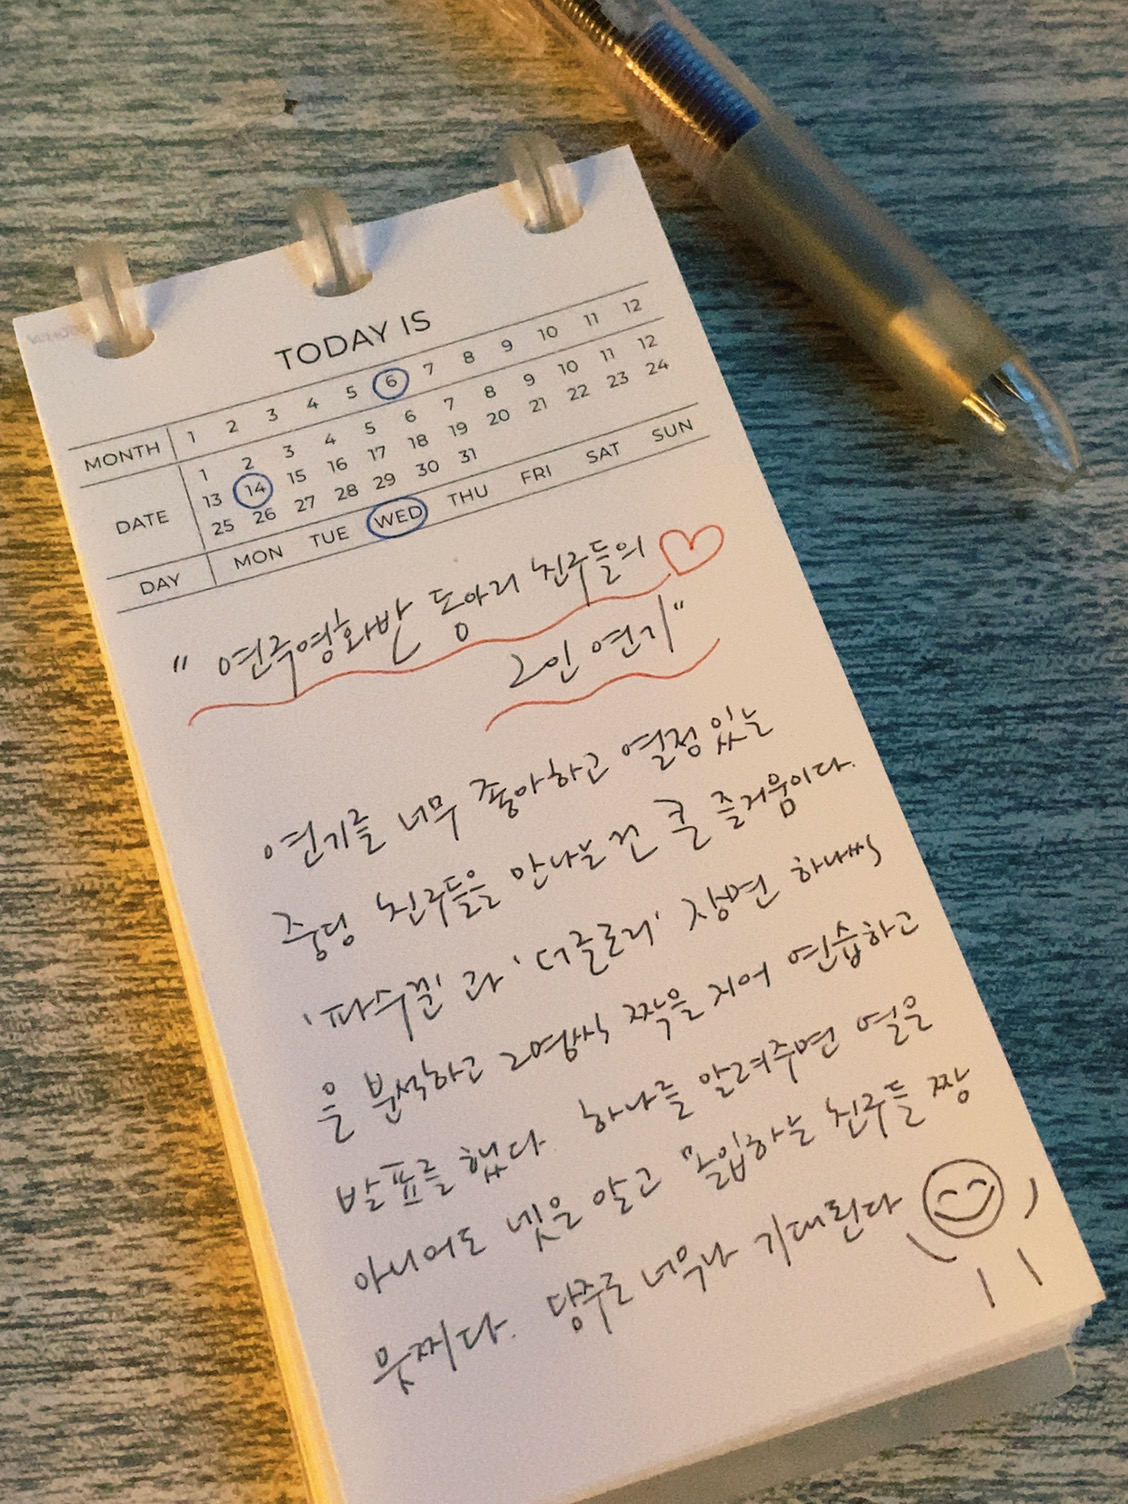 TODAY IS
MONTH 1 2 3 4 5 6 7 8 9 10 11 12
1 2 3 4 5 6 7 8 9 10 11 12
DATE 13 14 15 16 17 18 19 20 21 22 23 24
25 26 27 28 29 30 31
DAY MON TUE WED THU FRI SAT SUN
"연주영화반 동아리 친구들의
2인 연기"
연기를 너무 좋아하고 열정있는
중딩 친구들을 만나는건 큰 즐거움이다.
'파수꾼'과 '더글로리' 장면 하나씩
을 분석하고 2명씩 짝을 지어 연습하고
발표를 했다. 하나를 알려주면 열은
아니어도 넷은 알고 몰입하는 친구들 짱
웃찌다. 담주도 너무나 기대된다